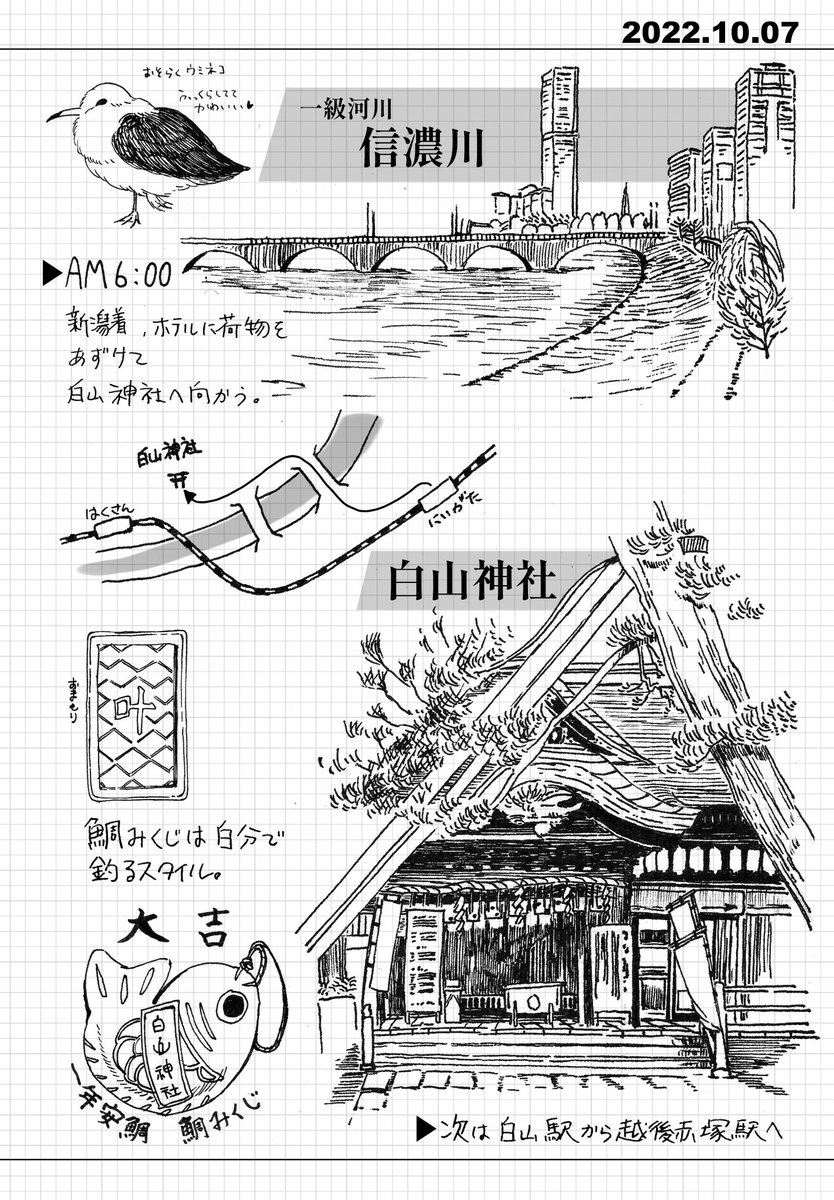 2022.10.07
おそらくウミネコ
ふっくらしてて
かわいい♥
一級河川
信濃川
▶AM6:00
新潟着、ホテルに荷物を
あずけて
白山神社へ向かう。
白山神社
はくさん
にいがた
白山神社
おまもり
叶
鯛みくじは自分で
釣るスタイル。
大吉
白山神社
一年安鯛 鯛みくじ
▶次は白山駅から越後赤塚駅へ